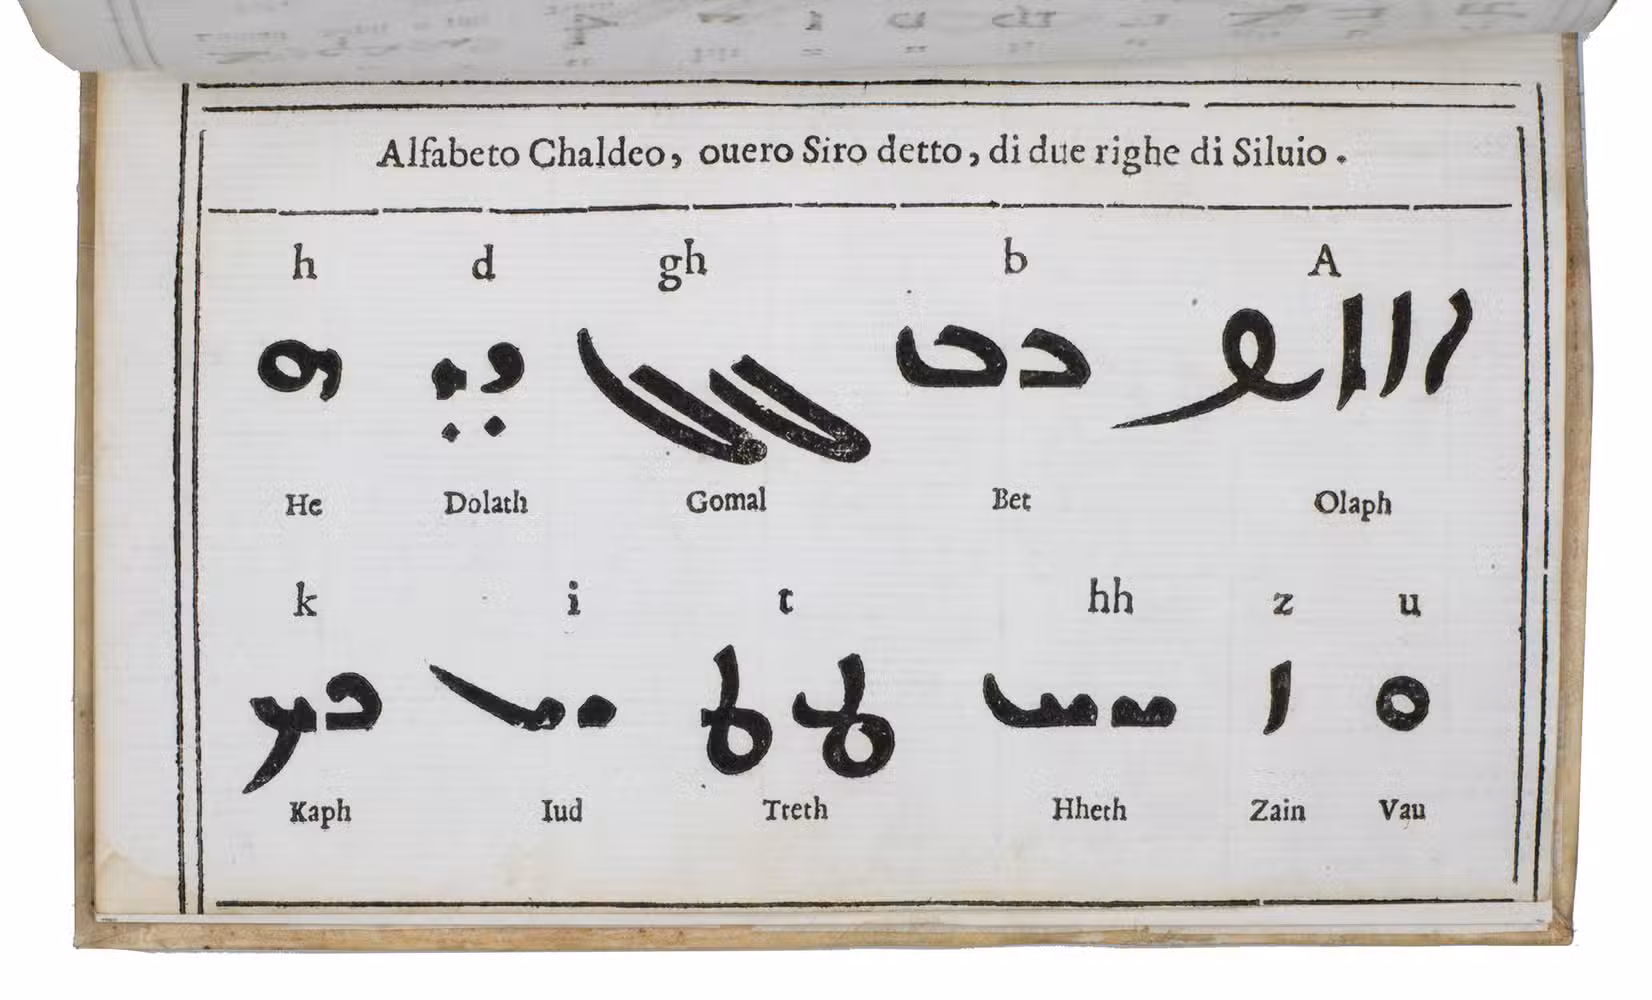 Alfabeto Chaldeo, ouero Siro detto, di due righe di Siluio.
h d gh b A
He Dolath Gomal Bet Olaph
k i t hh z u
Kaph Iud Tteth Hheth Zain Vau